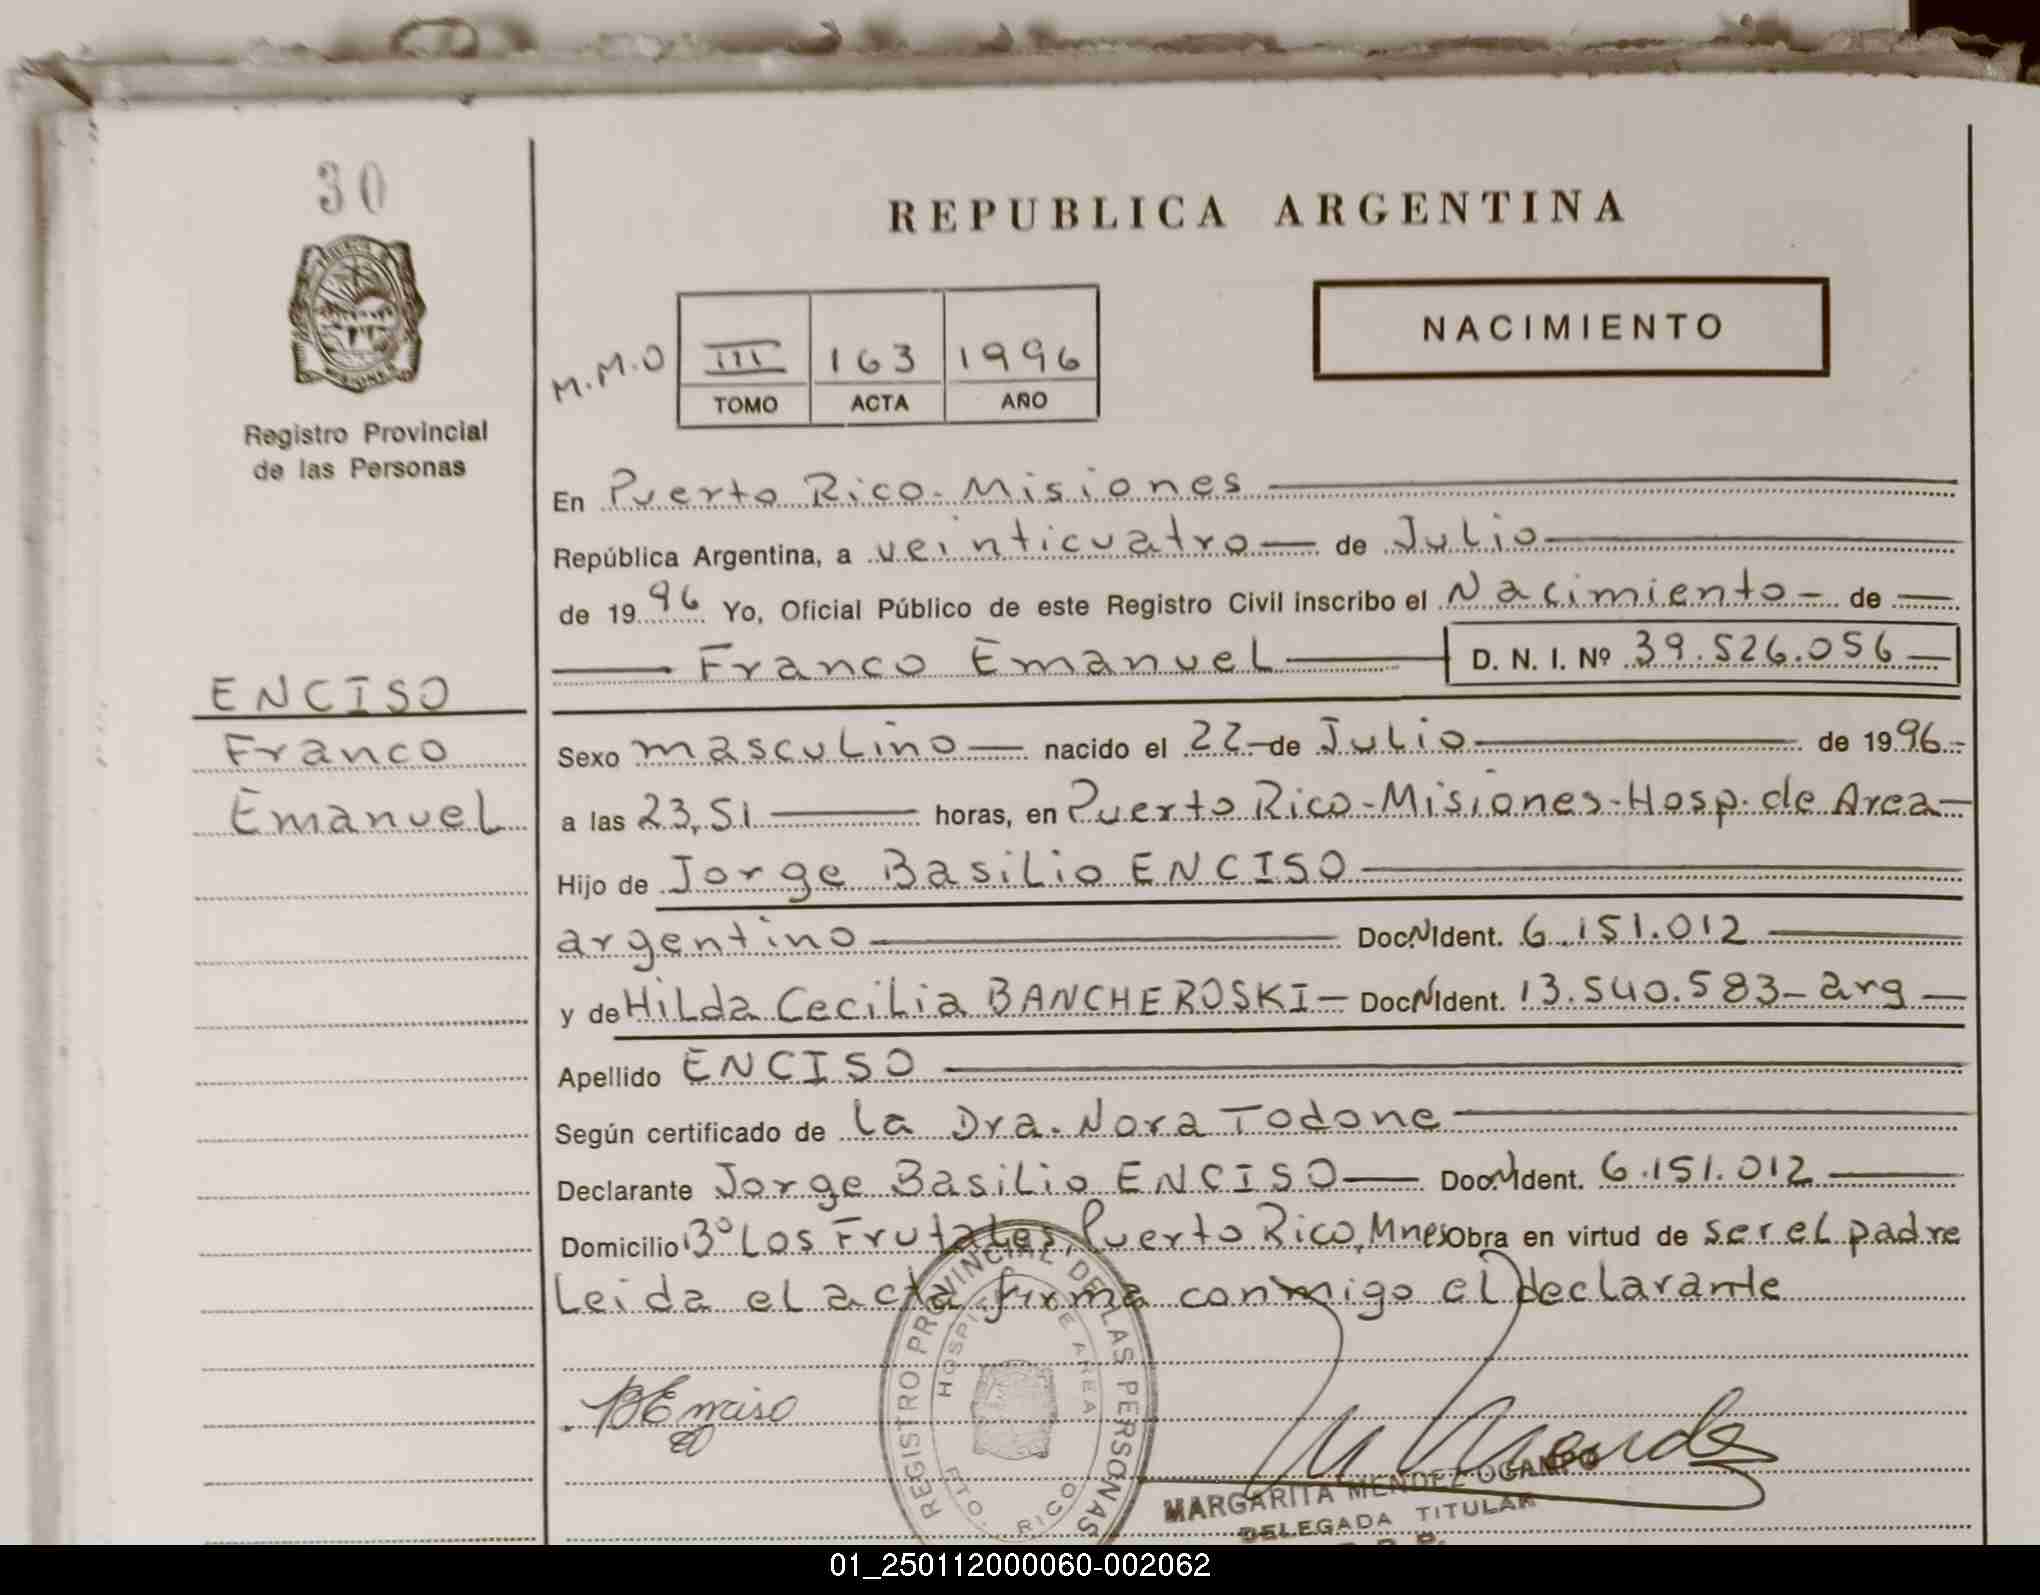 30
REPUBLICA ARGENTINA
NACIMIENTO
M.M.O
III 163 1996
TOMO ACTA AÑO
Registro Provincial
de las Personas
En Puerto Rico - Misiones
República Argentina, a veinticuatro de Julio
de 1996 Yo, Oficial Público de este Registro Civil inscribo el Nacimiento - de
Franco Emanuel D. N. I. Nº 39.526.056
ENCISO
Franco
Emanuel
Sexo masculino nacido el 22 de Julio de 1996
a las 23,51 horas, en Puerto Rico - Misiones - Hosp. de Area
Hijo de Jorge Basilio ENCISO
argentino Doc. N Ident. 6.151.012
y de Hilda Cecilia BANCHEROSKI - Doc. N Ident. 13.540.583 - arg
Apellido ENCISO
Según certificado de la Dra. Nora Todone
Declarante Jorge Basilio ENCISO Doc. N Ident. 6.151.012
Domicilio Bº Los Frutales, Puerto Rico, Mnes Obra en virtud de ser el padre
Leida el acta firma conmigo el declarante
REGISTRO PROVINCIAL DE LAS PERSONAS
HOSPITAL DE AREA
PTO. RICO
Enciso
MARGARITA MENDEZ OCAMPO
DELEGADA TITULAR
01_250112000060-002062